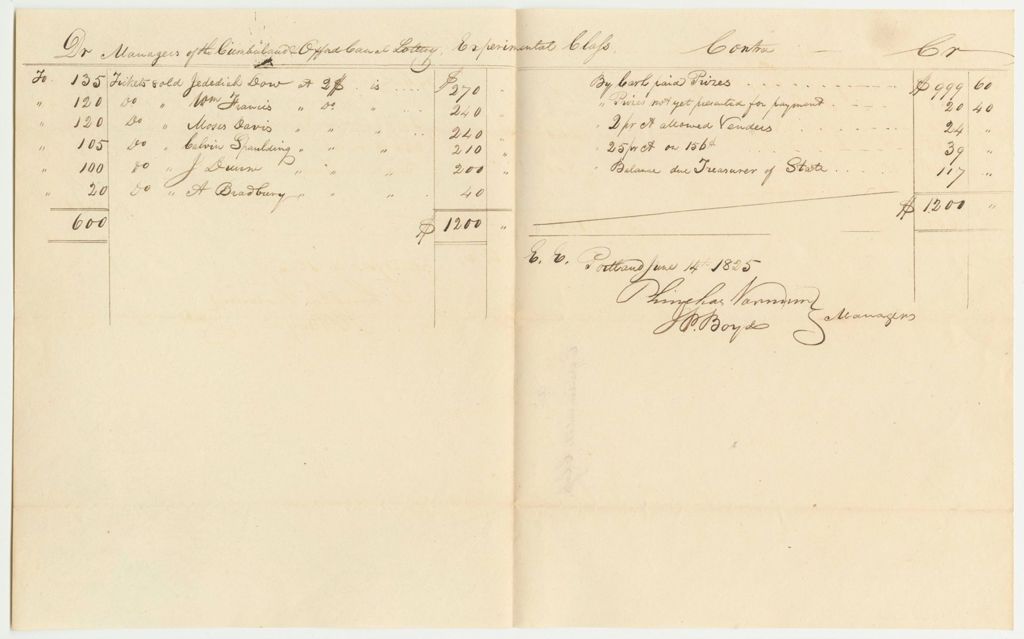 Dr Managers of the Cumberland & Oxford Canal Lottery, Experimental Class Contra Cr
To 135 Tickets sold Jedediah Dow at 2$ is $ 270 "
" 120 Do " Wm Francis " Do " 240 "
" 120 Do " Moses Davis " " " 240 "
" 105 Do " Calvin Spaulding " " " 210 "
" 100 Do " J Dunn " " " 200 "
" 20 Do " A Bradbury " " " 40 "
600 $ 1200 "
By Cash paid Prizes $ 999 60
" Prizes not yet presented for payment 20 40
" 2 pr Ct allowed Venders 24 "
" 25 pr Ct on 156$ 39 "
" Balance due Treasurer of State 117 "
$ 1200 "
E. E. Portland June 14th 1825
Phinehas Varnum
J P. Boyd
Managers